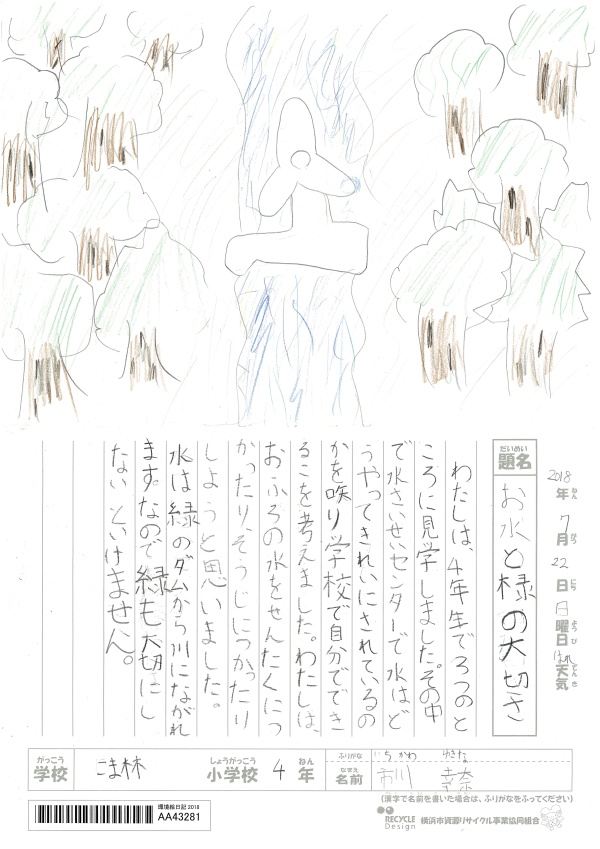 2018年ねん 7月がつ 22日にち 日曜日ようび はれ天気てんき
だいめい
題名
お水と緑の大切さ
わたしは、4年生でろつのと
ころに見学しました。その中
で水さいせいセンターで水はど
うやってきれいにされているの
かを咲り学校で自分ででき
ることを考えました。わたしは、
おふろの水をせんたくにつ
かったり、そうじにつかったり
しようと思いました。
水は緑のダムから川にながれ
ます。なので緑も大切にし
ないといけません。
がっこう
学校
こま林
しょうがっこう
小学校
4
ねん
年
ふりがな
いちかわ ゆきな
なまえ
名前
市川 幸奈
(漢字で名前を書いた場合は、ふりがなをふってください)
環境絵日記 2018
AA43281
RECYCLE Design
横浜市資源リサイクル事業協同組合